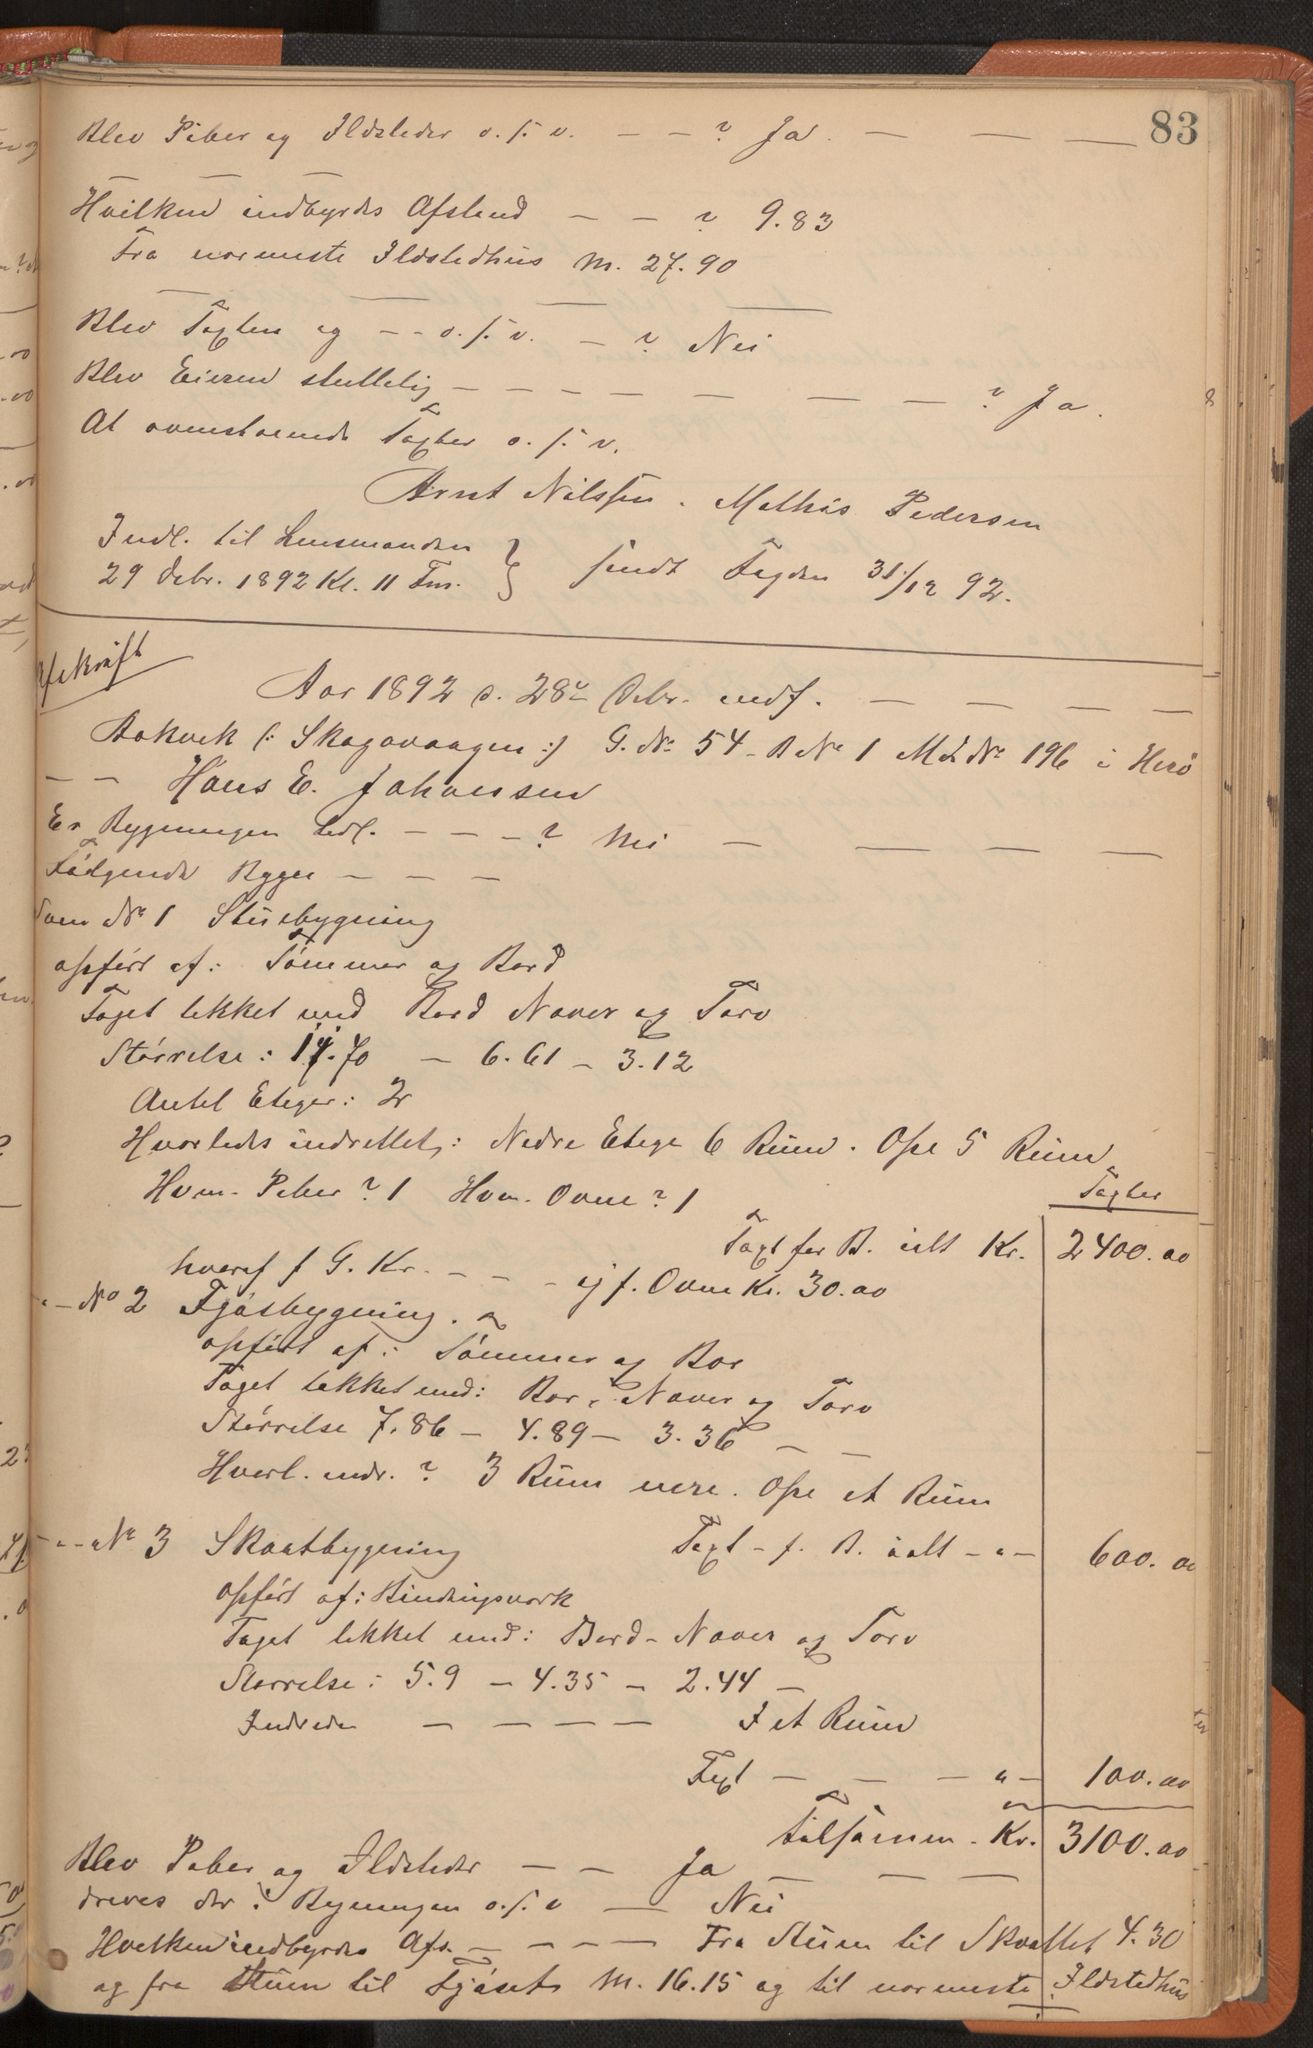 83
Blev Piber og Ildsteder o.s.v. — — ? Ja. — — —
Hvilken indbyrdes Afstand — — ? 9.83
Fra nærmeste Ildstedhus M. 27.90
Blev Taxten og — — o.s.v. — ? Nei
Blev Eieren skettelig — — — — — — — ? Ja.
At ovenstaaende Taxter o.s.v.
Arnt Nilssen. Mathis Pedersen
Indl. til Lensmanden } sendt Fogden 31/12 92.
29 Debr. 1892 Kl. 11 Fm.
Afskrift
Aar 1892 d. 28de Debr. endf. — — — —
Bakvek (: Skagavaagen :) G. No 54 - B No 1 Md No 196 i Herø
— — Hans E. Johansen
Er Bygningen bedl. — — — ? Nei — — — —
Følgende Bygn — — —
Som No 1 Stuebygning
opført af: Tømmer og Bord
Taget tekket med Bord Never og Torv
Størrelse: 14.70 — 6.61 — 3.12
Antal Etager: 2
Hvorledes indrettet: Nedre Etage 6 Rum. Øfre 5 Rum
Hvm. Piber ? 1 Hvm. Ovne ? 1 Taxter
Taxt for B. ialt Kr. 2400.00
hvoraf f G. Kr. — — — og f. Ovne Kr. 30.00
" — No 2 Fjøsbygning.
opført af: Tømmer og Bor
Taget tekket med: Bor, Never og Torv
Størrelse 7.86 — 4.89 — 3.36 — —
Hvorl. indr. ? 3 Rum nere. Øfre et Rum
— " — No 3 Skaatbygning Taxt — f. B. ialt — " — 600.00
opført af: Bindingsverk
Taget tekket med: Bord - Never og Torv
Størrelse: 5.9 — 4.35 — 2.44 —
Indreden — — — — I et Rum
Taxt — — — " — 100.00
tilsamen. Kr. 3100.00
Blev Piber og Ildsteder — — Ja — — —
dreves der i Bygningen o.s.v — Nei
Hvilken indbyrdes Afs. — — — — Fra Stuen til Skaattet 4.30
og fra Stuen til Fjøset M. 16.15 og til nærmeste Ildstedhus